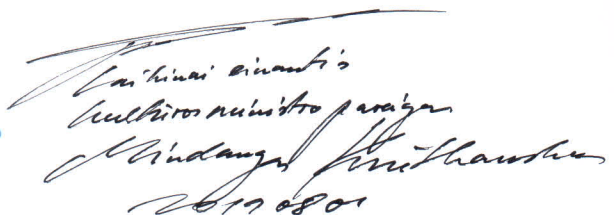 Laikinai einantis
kultūros ministro pareigas
Mindaugas Kvietkauskas
2019 08 01